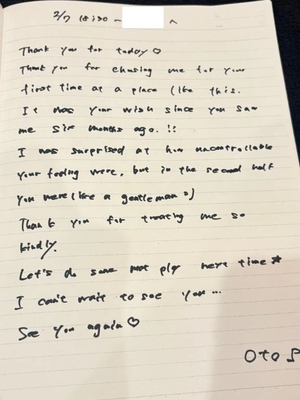 2/7 18:30 ~
Thank you for today♡
Thank you for chusing me for your
first time at a place like this.
It was your wish since you saw
me six months ago. !!
I was surprised at how uncontrollable
your feeling were, but in the second half
you were like a gentleman :)
Thank you for treating me so
kindly.
Let's do some play next time☆
I can't wait to see you...
See you again♡